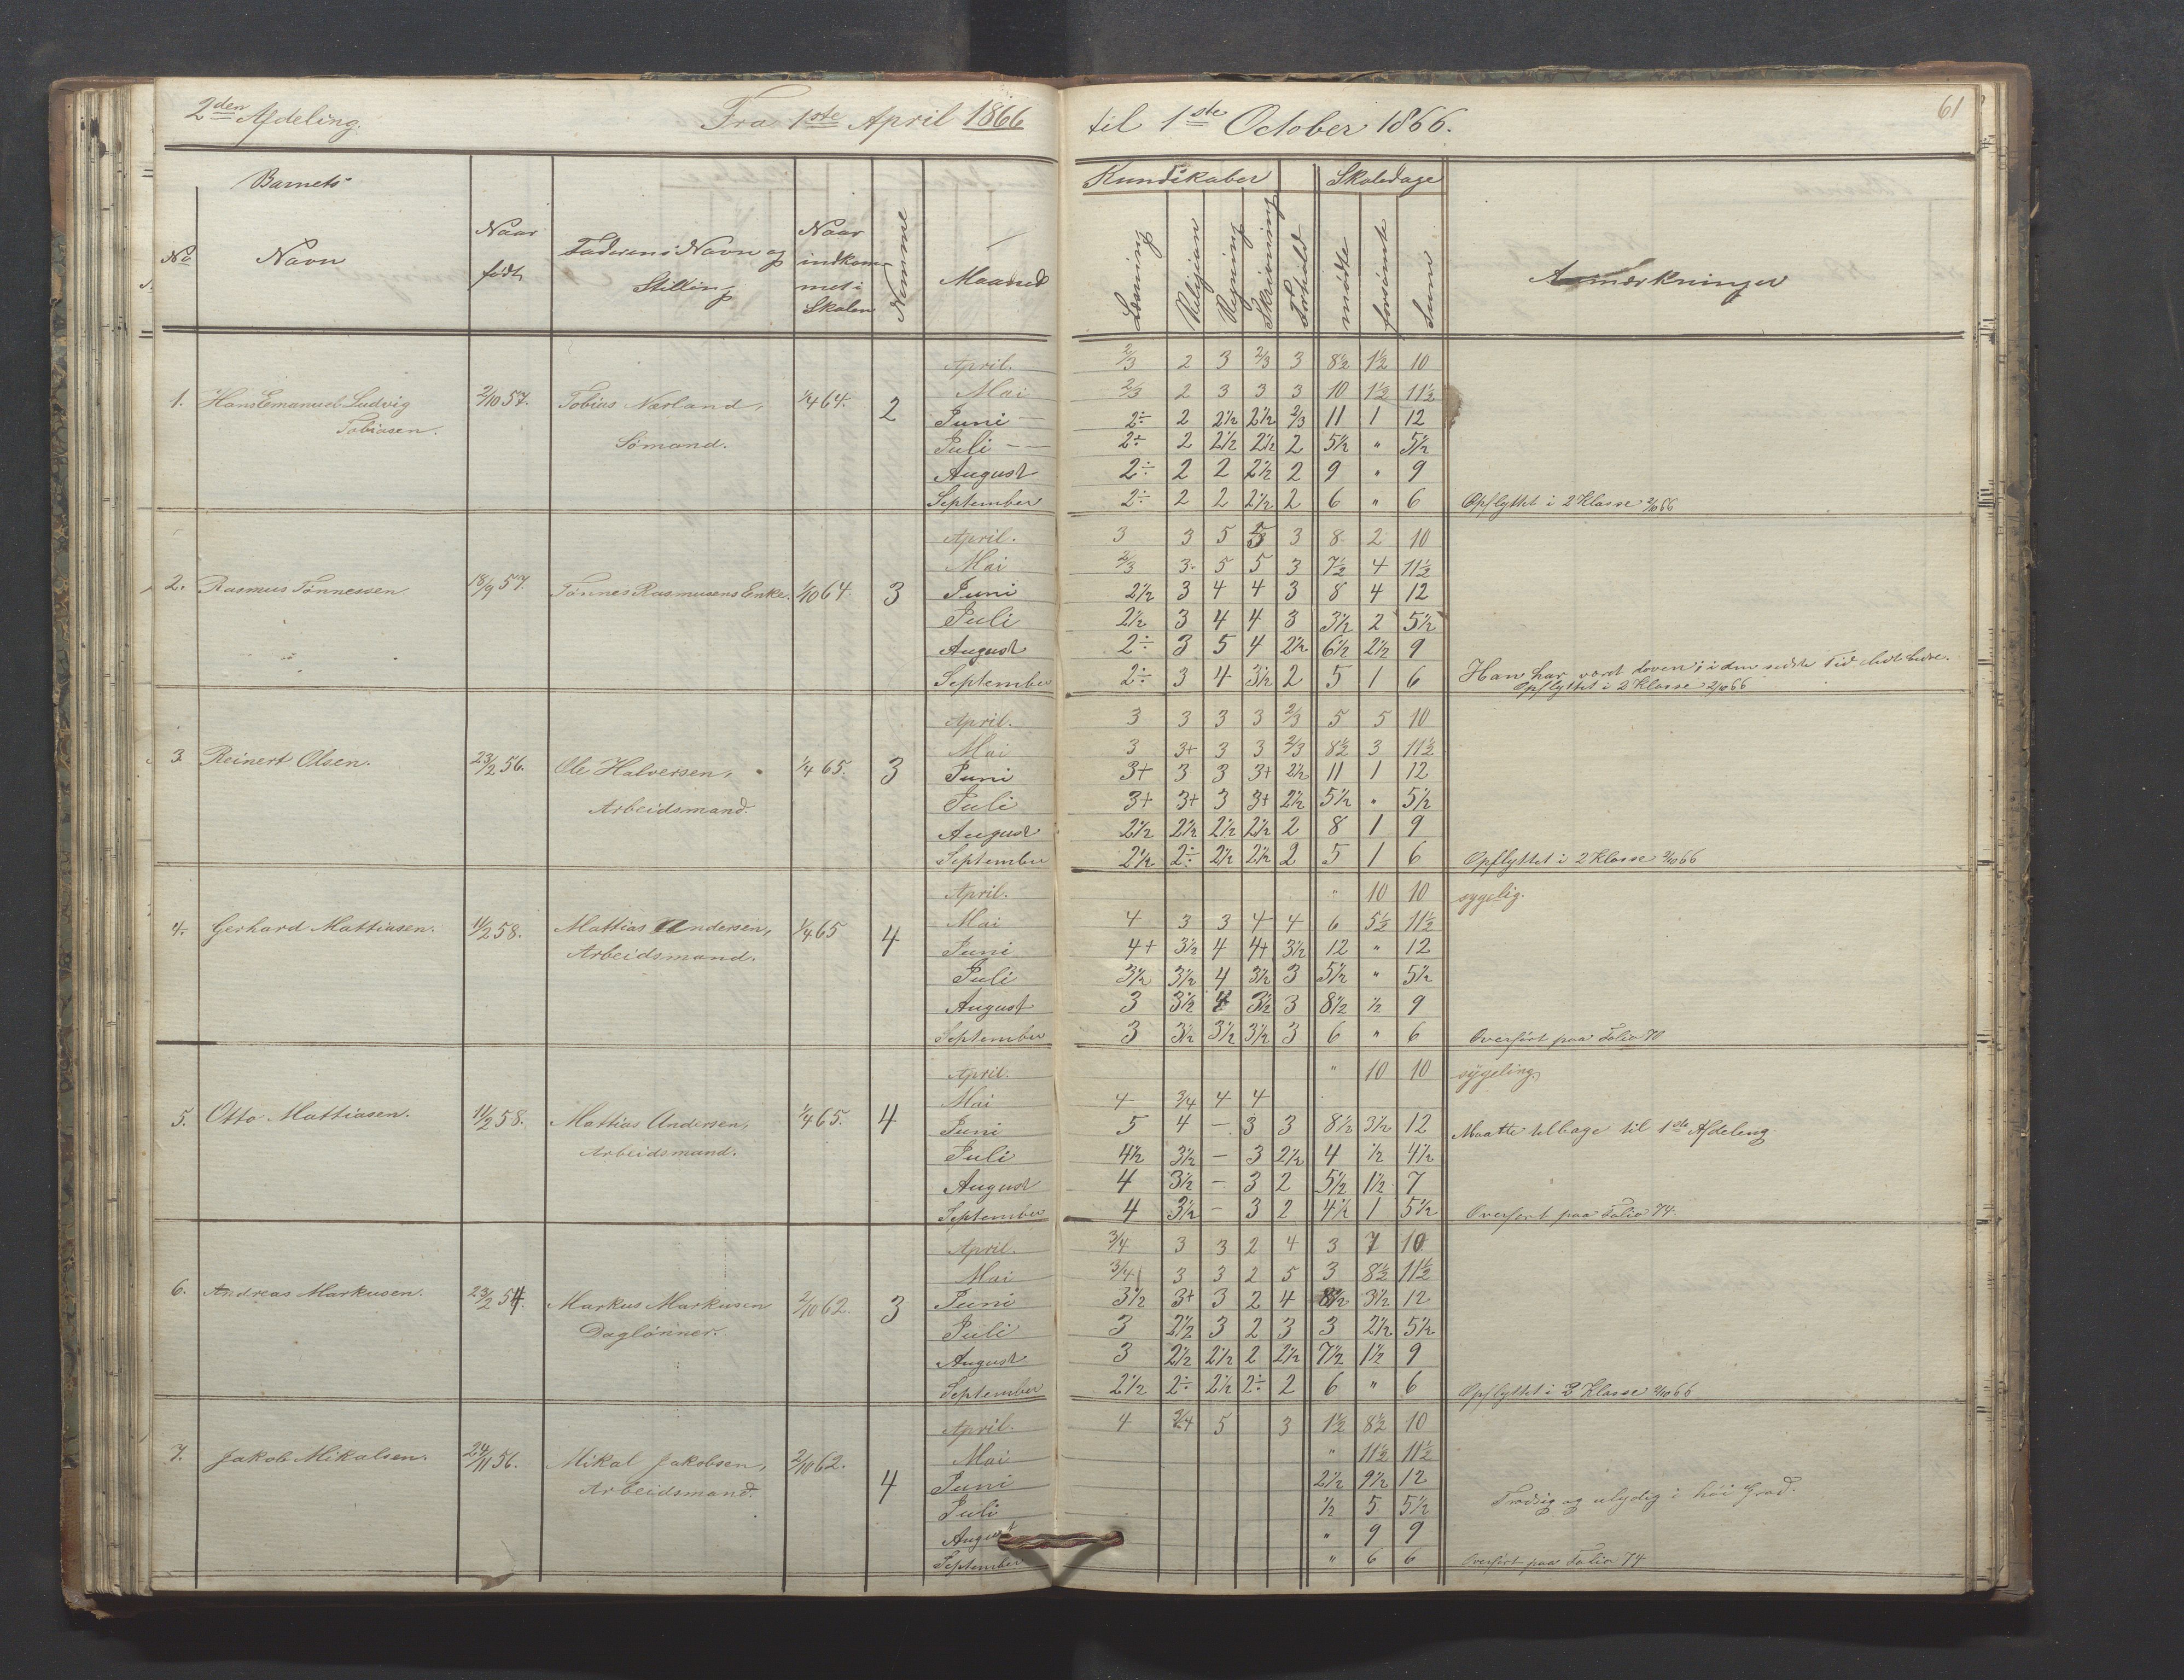 2den Afdeling. Fra 1ste April 1866 til 1ste October 1866. 61
Barnets Kundskaber Skoledage
No Navn Naar født Faderens Navn og Stilling Naar indkommet i Skolen Nemme Maaned Læsning Religion Regning Skrivning Forhold mødte forsømte Sum Anmærkninger
April. 2/3 2 3 2/3 3 8½ 1½ 10
1. Hans Emanuel Ludvig 2/10 57. Tobias Nærland, 1/4 64. 2 Mai 2/3 2 3 3 3 10 1½ 11½
Tobiasen. Juni 2÷ 2 2½ 2½ 2/3 11 1 12
Sømand. Juli 2÷ 2 2½ 2½ 2 5½ " 5½
August 2÷ 2 2 2½ 2 9 " 9
September 2÷ 2 2 2½ 2 6 " 6 Opflyttet i 2 Klasse 2/10 66
April. 3 3 5 5 3 8 2 10
Mai 2/3 3 5 5 3 7½ 4 11½
2. Rasmus Tønnessen 18/9 57. Tønnes Rasmusens Enke. 1/10 64. 3 Juni 2½ 3 4 4 3 8 4 12
Juli 2½ 3 4 4 3 3½ 2 5½
August 2÷ 3 5 4 2½ 6½ 2½ 9
September 2÷ 3 4 3½ 2 5 1 6 Han har været doven; i den sidste Tid lidt bedre.
Opflyttet i 2 Klasse 2/10 66
April. 3 3 3 3 2/3 5 5 10
3. Reinert Olsen. 23/2 56. Ole Halversen, 1/4 65. 3 Mai 3 3+ 3 3 2/3 8½ 3 11½
Juni 3+ 3 3 3+ 2½ 11 1 12
Arbeidsmand. Juli 3+ 3+ 3 3+ 2½ 5½ " 5½
August 2½ 2½ 2½ 2½ 2 8 1 9
September 2½ 2÷ 2½ 2½ 2 5 1 6 Opflyttet i 2 Klasse 2/10 66
April. " 10 10 sygelig.
4. Gerhard Mattiasen. 11/2 58. Mattias Andersen, 1/4 65 4 Mai 4 3 3 4 4 6 5½ 11½
Arbeidsmand. Juni 4+ 3½ 4 4+ 3½ 12 " 12
Juli 3½ 3½ 4 3½ 3 5½ " 5½
August 3 3½ 4 3½ 3 8½ ½ 9
September 3 3½ 3½ 3½ 3 6 " 6 Overført paa Folio 70
April. " 10 10 sygeling,
Mai 4 3/4 4 4
5. Otto Mattiasen. 11/2 58. Mattias Andersen, 1/4 65. 4 Juni 5 4 – 3 3 8½ 3½ 12 Maatte tilbage til 1ste Afdeling
Arbeidsmand. Juli 4½ 3½ – 3 2½ 4 ½ 4½
August 4 3½ – 3 2 5½ 1½ 7
September 4 3½ – 3 2 4½ 1 5½ Overført paa Folio 74.
April. 3/4 3 3 2 4 3 7 10
6. Andreas Markusen. 23/2 54. Markus Markusen 2/10 62. 3 Mai 3/4 3 3 2 5 3 8½ 11½
Juni 3½ 3+ 3 2 4 8½ 3½ 12
Daglønner. Juli 3 2½ 3 2 3 3 2½ 5½
August 3 2½ 2½ 2 2½ 7½ 1½ 9
September 2½ 2÷ 2½ 2÷ 2 6 " 6 Opflyttet i 3 Klasse 2/10 66
April. 4 3/4 5 3 1½ 8½ 10
7. Jakob Mikalsen. 24/11 56. Mikal Jakobsen, 2/10 62. 4 Mai " 11½ 11½
Arbeidsmand. Juni 2½ 9½ 12
Juli ½ 5 5½ Trodsig og ulydig i høi Grad.
August " 9 9
September " 6 6 Overført paa Folio 74